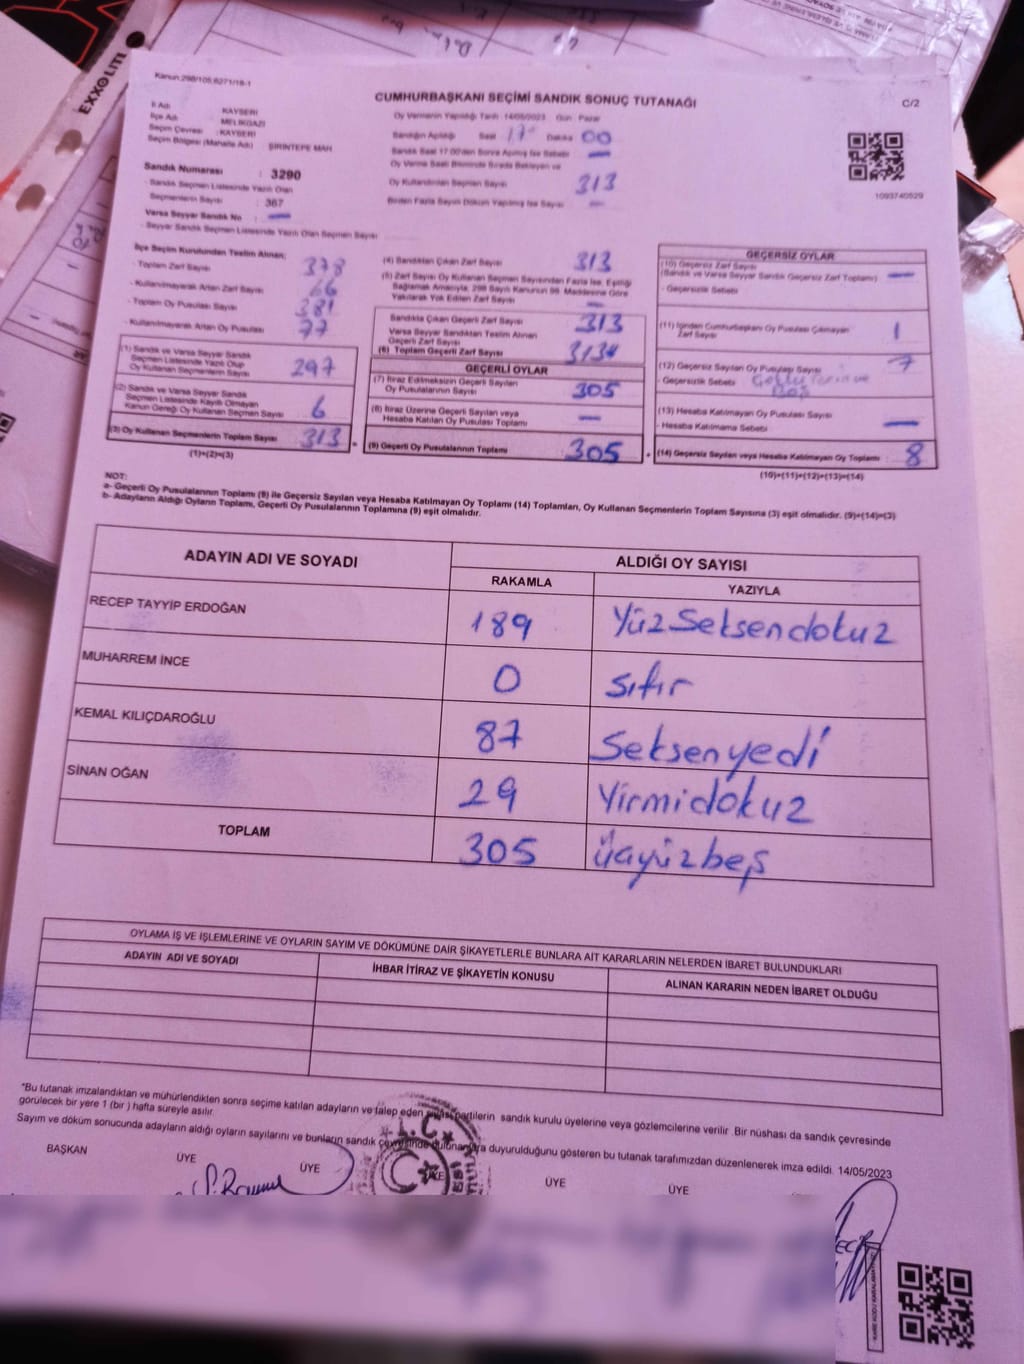 EXXOLİTE
Kanun:298/105,6271/18-1
CUMHURBAŞKANI SEÇİMİ SANDIK SONUÇ TUTANAĞI
C/2
İl Adı : KAYSERİ
İlçe Adı : MELİKGAZİ
Seçim Çevresi : KAYSERİ
Seçim Bölgesi (Mahalle Adı) ŞİRİNTEPE MAH
Sandık Numarası : 3290
- Sandık Seçmen Listesinde Yazılı Olan
Seçmenlerin Sayısı : 367
Varsa Seyyar Sandık No : —
- Seyyar Sandık Seçmen Listesinde Yazılı Olan Seçmen Sayısı
Oy Vermenin Yapıldığı Tarih :14/05/2023 Gün : Pazar
Sandığın Açıldığı Saat 17 Dakika 00
Sandık Saat 17.00'den Sonra Açılmış İse Sebebi —
Oy Verme Saati Bitiminde Sırada Bekleyen ve
Oy Kullandırılan Seçmen Sayısı 313
Birden Fazla Sayım Döküm Yapılmış İse Sayısı —
1093740529
İlçe Seçim Kurulundan Teslim Alınan;
- Toplam Zarf Sayısı 378
- Kullanılmayarak Artan Zarf Sayısı 66
- Toplam Oy Pusulası Sayısı 381
- Kullanılmayarak Artan Oy Pusulası 77
(1) Sandık ve Varsa Seyyar Sandık
Seçmen Listesinde Yazılı Olup
Oy Kullanan Seçmenlerin Sayısı 297
(2) Sandık ve Varsa Seyyar Sandık
Seçmen Listesinde Kayıtlı Olmayan
Kanun Gereği Oy Kullanan Seçmen Sayısı 6
(3) Oy Kullanan Seçmenlerin Toplam Sayısı 313 =
(1)+(2)=(3)
(4) Sandıktan Çıkan Zarf Sayısı 313
(5) Zarf Sayısı Oy Kullanan Seçmen Sayısından Fazla İse, Eşitliği
Sağlamak Amacıyla, 298 Sayılı Kanunun 98. Maddesine Göre
Yakılarak Yok Edilen Zarf Sayısı —
Sandıkta Çıkan Geçerli Zarf Sayısı 313
Varsa Seyyar Sandıktan Teslim Alınan
Geçerli Zarf Sayısı
(6) Toplam Geçerli Zarf Sayısı 313
GEÇERLİ OYLAR
(7) İtiraz Edilmeksizin Geçerli Sayılan
Oy Pusulalarının Sayısı 305
(8) İtiraz Üzerine Geçerli Sayılan veya
Hesaba Katılan Oy Pusulası Toplamı —
(9) Geçerli Oy Pusulalarının Toplamı 305 +
GEÇERSİZ OYLAR
(10) Geçersiz Zarf Sayısı
(Sandık ve Varsa Seyyar Sandık Geçersiz Zarf Toplamı) —
- Geçersizlik Sebebi
(11) İçinden Cumhurbaşkanı Oy Pusulası Çıkmayan
Zarf Sayısı 1
(12) Geçersiz Sayılan Oy Pusulası Sayısı 7
- Geçersizlik Sebebi
Boş
(13) Hesaba Katılmayan Oy Pusulası Sayısı
- Hesaba Katılmama Sebebi —
(14) Geçersiz Sayılan veya Hesaba Katılmayan Oy Toplamı : 8
(10)+(11)+(12)+(13)=(14)
NOT:
a- Geçerli Oy Pusulalarının Toplamı (9) ile Geçersiz Sayılan veya Hesaba Katılmayan Oy Toplamı (14) Toplamları, Oy Kullanan Seçmenlerin Toplam Sayısına (3) eşit olmalıdır. (9)+(14)=(3)
b- Adayların Aldığı Oyların Toplamı, Geçerli Oy Pusulalarının Toplamına (9) eşit olmalıdır.
ADAYIN ADI VE SOYADI
ALDIĞI OY SAYISI
RAKAMLA YAZIYLA
RECEP TAYYİP ERDOĞAN 189 Yüz Seksendokuz
MUHARREM İNCE 0 sıfır
KEMAL KILIÇDAROĞLU 87 Seksenyedi
SİNAN OĞAN 29 Yirmidokuz
TOPLAM 305 üçyüzbeş
OYLAMA İŞ VE İŞLEMLERİNE VE OYLARIN SAYIM VE DÖKÜMÜNE DAİR ŞİKAYETLERLE BUNLARA AİT KARARLARIN NELERDEN İBARET BULUNDUKLARI
ADAYIN ADI VE SOYADI
İHBAR İTİRAZ VE ŞİKAYETİN KONUSU
ALINAN KARARIN NEDEN İBARET OLDUĞU
*Bu tutanak imzalandıktan ve mühürlendikten sonra seçime katılan adayların ve talep eden siyasi partilerin sandık kurulu üyelerine veya gözlemcilerine verilir. Bir nüshası da sandık çevresinde
görülecek bir yere 1 (bir) hafta süreyle asılır.
Sayım ve döküm sonucunda adayların aldığı oyların sayılarını ve bunların sandık çevresinde bulunanlara duyurulduğunu gösteren bu tutanak tarafımızdan düzenlenerek imza edildi. 14/05/2023
BAŞKAN ÜYE ÜYE ÜYE ÜYE ÜYE
T.C.